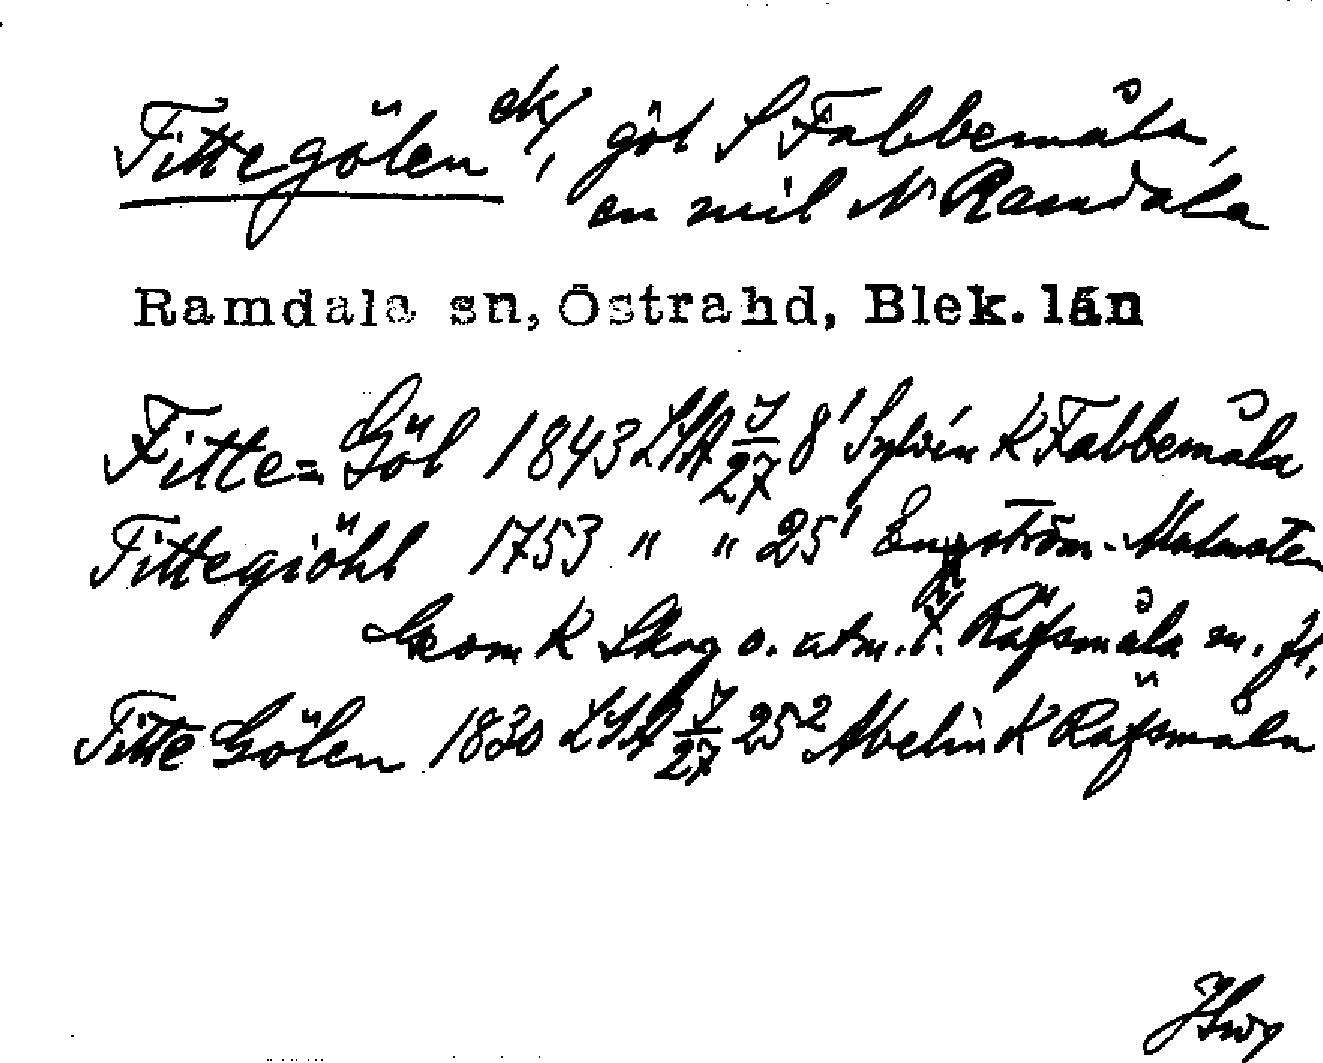 Fittegölen ek/, göl S Fabbemåla,
en mil N Ramdala
Ramdala sn, Östra hd, Blek. län
Fitte=Göl 1843 LSA J/27 8¹ Sylvin K Fabbemåla
Fittegiöhl 1753 " " 25¹ Engström-Malmsten
Geom K Skog o. utm. t. Räfsmåla m. fl.
Fitte Gölen 1830 LSA J/27 25² Abelin K Räfsmåla